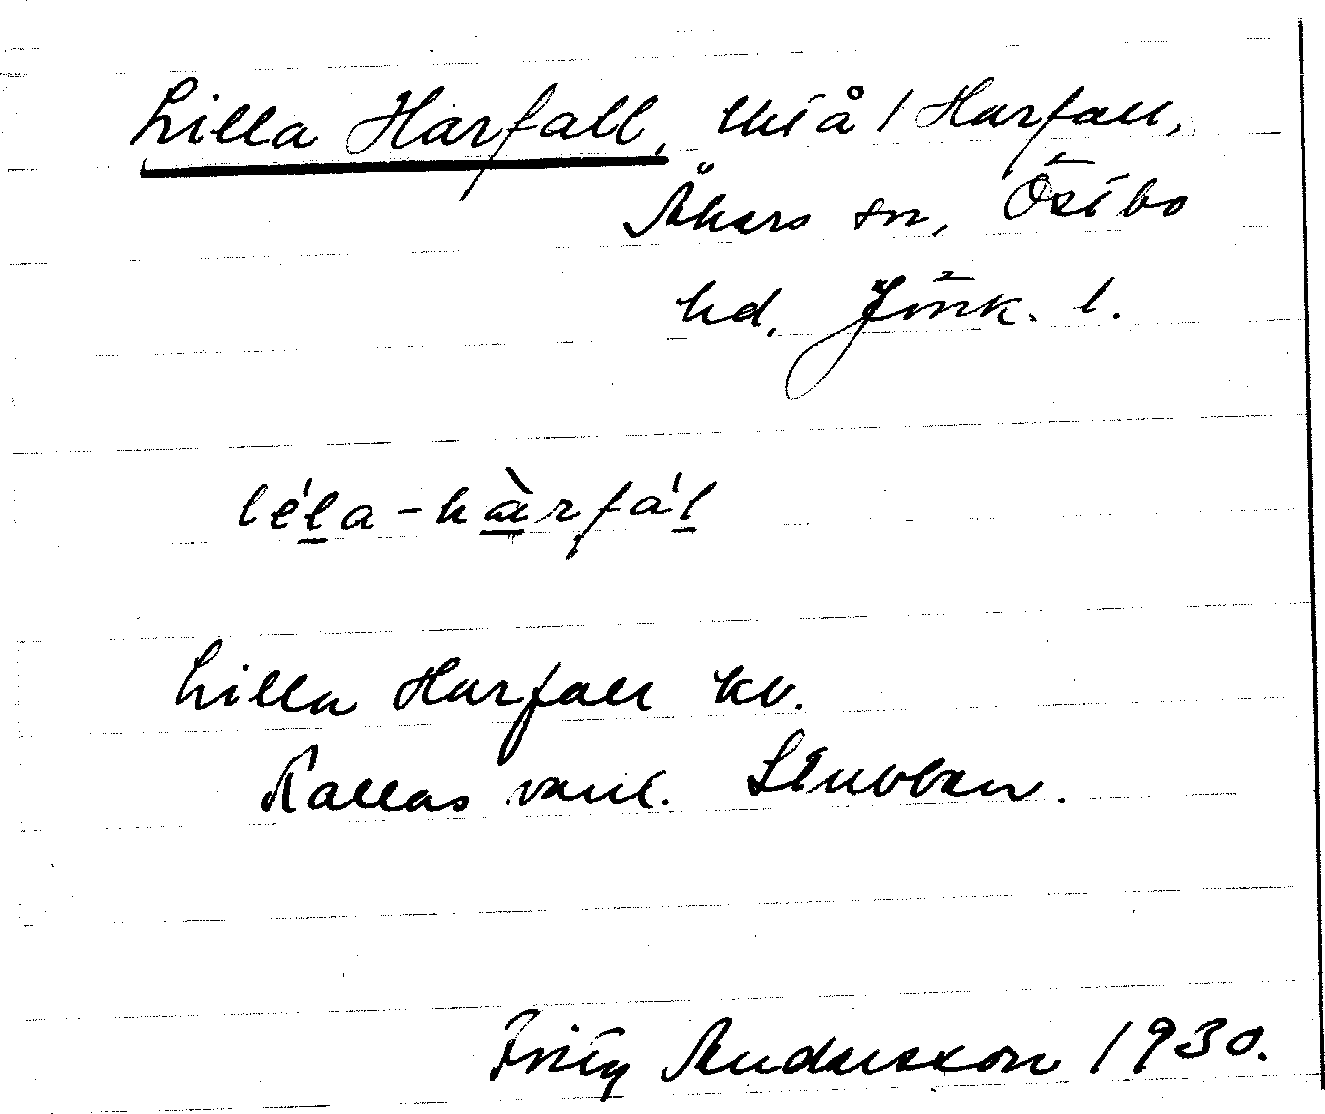 Lilla Harfall, till å / Harfall,
Åkers sn, Östbo
hd, Jönk. l.
lé̱la - hà̱rfá'ḻ
Lilla Harfall kv.
Kallas vanl. Stubben.
Fritz Andersson 1930.